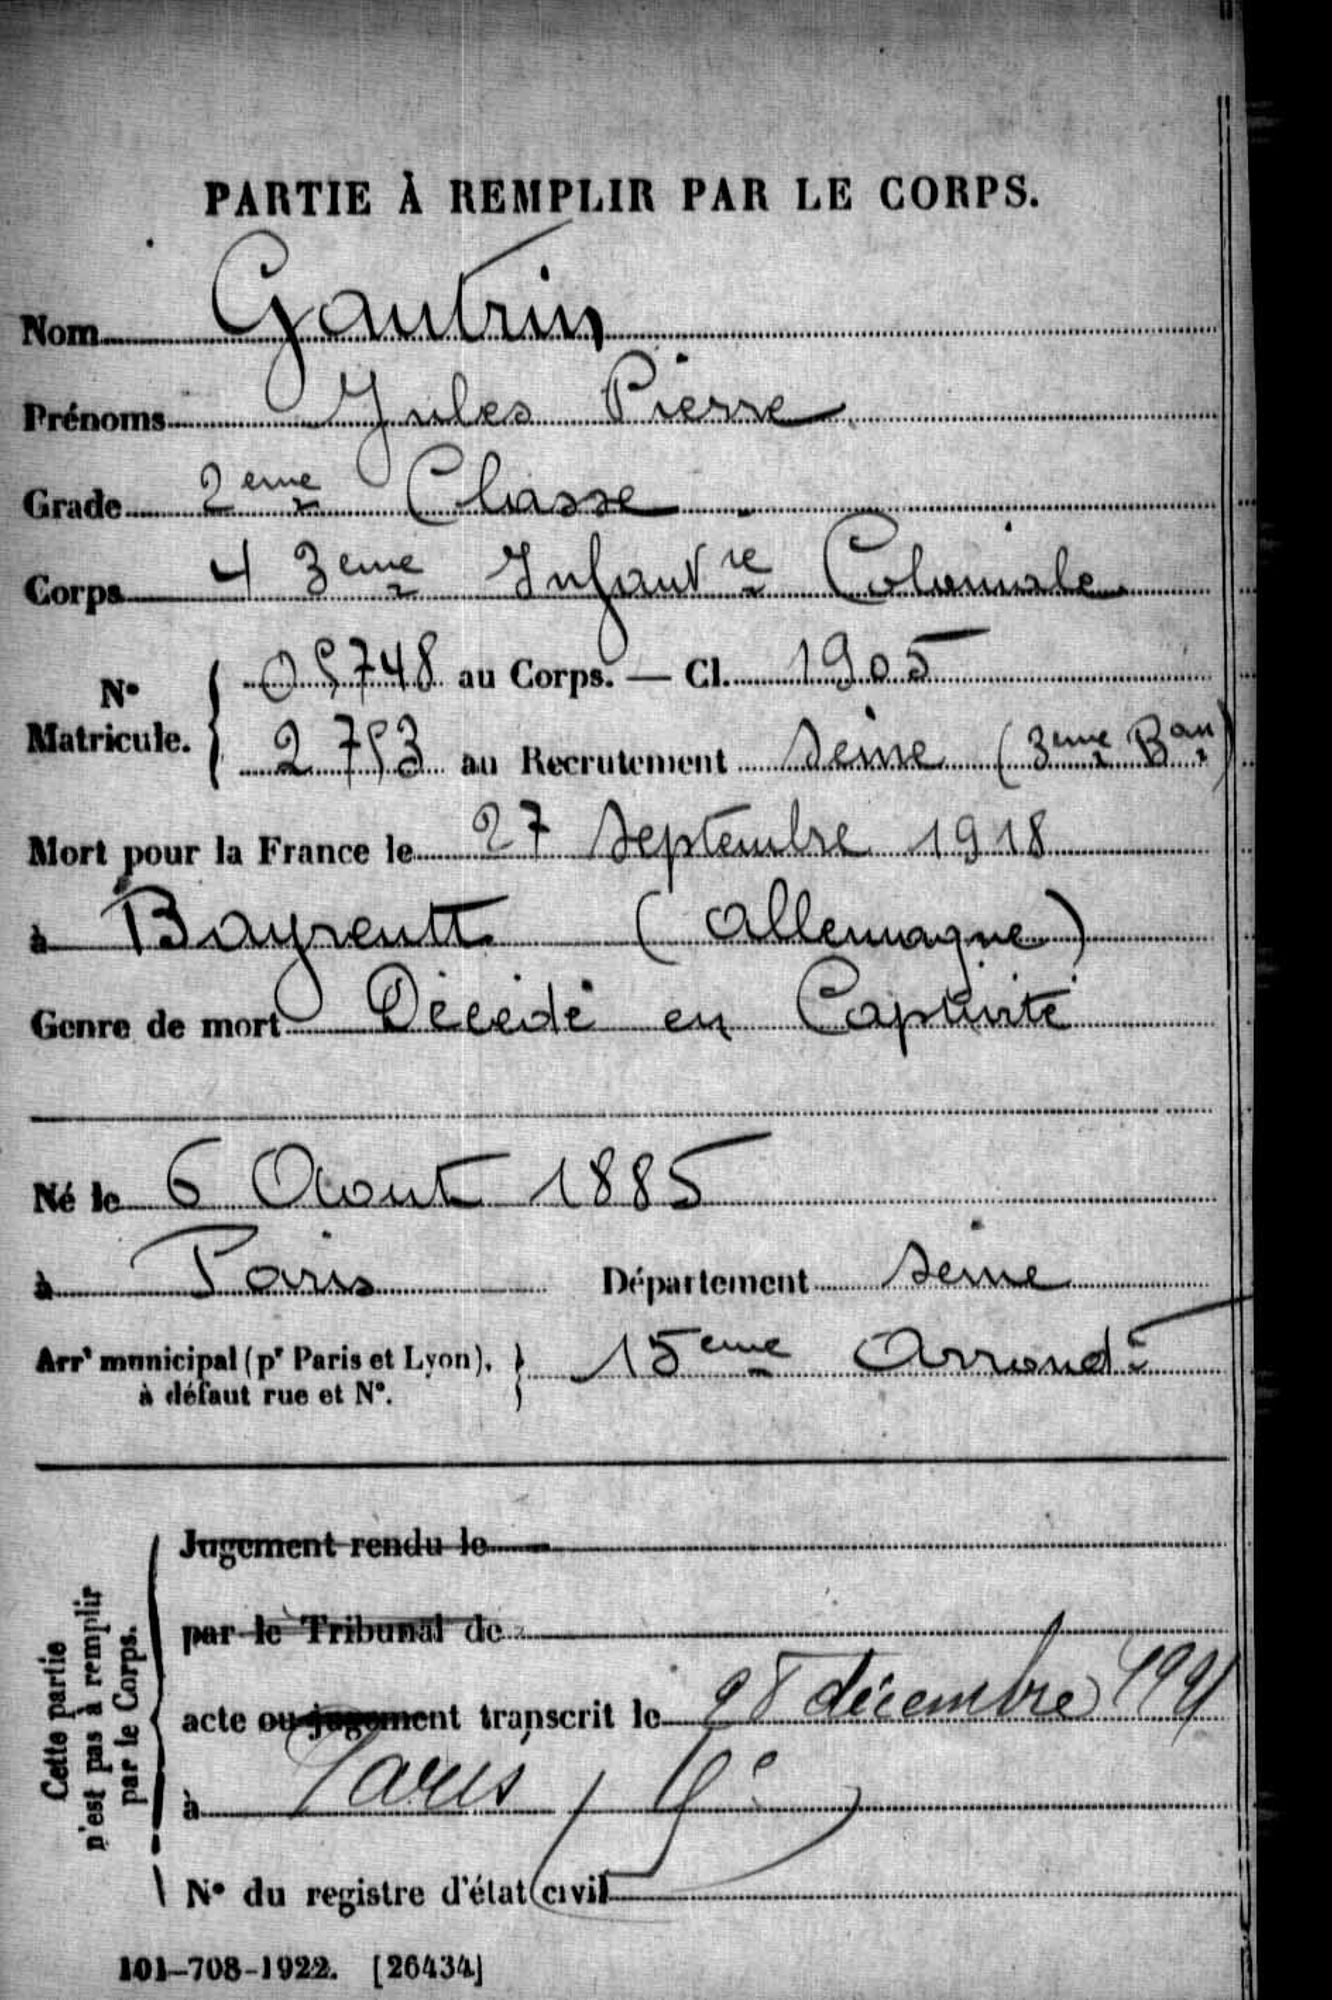 PARTIE À REMPLIR PAR LE CORPS.
Nom Gautrin
Prénoms Jules Pierre
Grade 2eme Classe
Corps 43eme Infantrie Coloniale
N° Matricule. { 05748 au Corps. — Cl. 1905
2753 au Recrutement Seine (3eme Bau)
Mort pour la France le 27 Septembre 1918
à Bayreutt (Allemagne)
Genre de mort Décédé en Captivité
Né le 6 Aout 1885
à Paris Département Seine
Arrt municipal (pr Paris et Lyon), } 15eme Arrondt
à défaut rue et N°.
Cette partie
n'est pas à remplir
par le Corps.
Jugement rendu le
par le Tribunal de
acte ou jugement transcrit le décembre
à Paris
N° du registre d'état civil
101-708-1922. [26434]